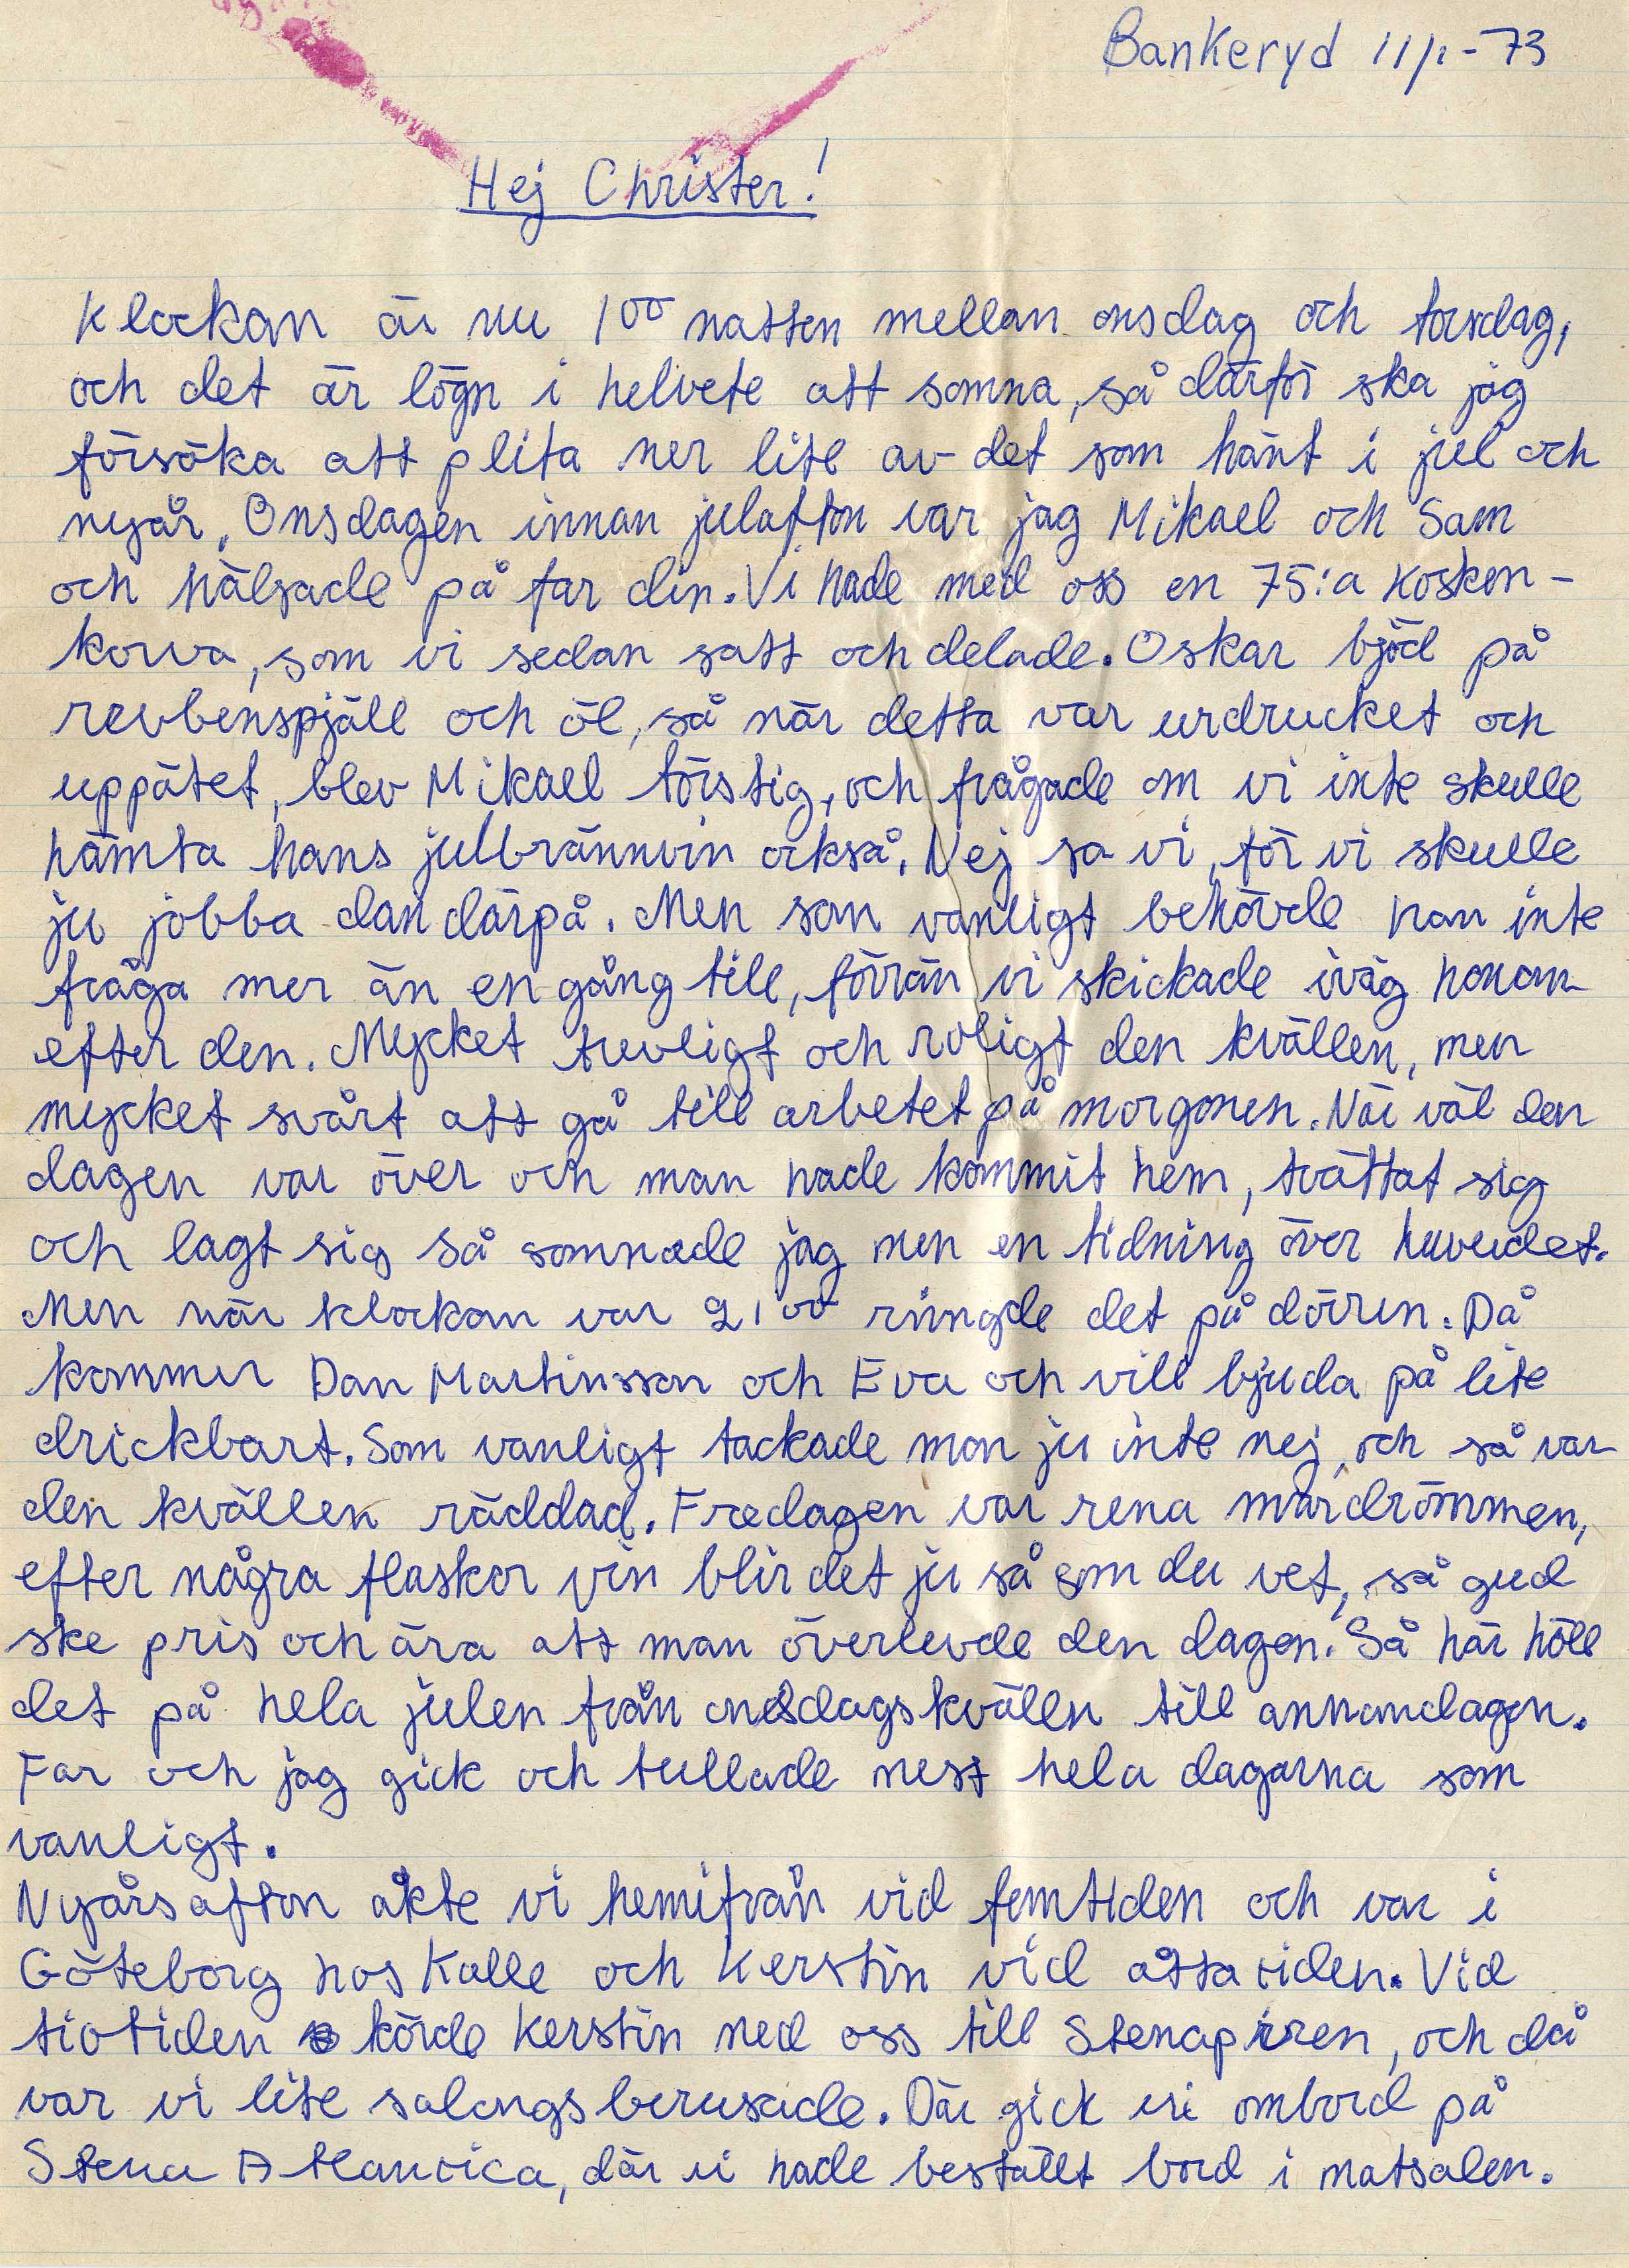 Bankeryd 11/1-73
Hej Christer!
Klockan är nu 1⁰⁰ natten mellan onsdag och torsdag,
och det är lögn i helvete att somna, så därför ska jag
försöka att plita ner lite av det som hänt i jul och
nyår. Onsdagen innan julafton var jag Mikael och Sam
och hälsade på far din. Vi hade med oss en 75:a Kosken-
korva, som vi sedan satt och delade. Oskar bjöd på
revbenspjäll och öl, så när detta var urdrucket och
uppätet, blev Mikael törstig, och frågade om vi inte skulle
hämta hans julbrännvin också. Nej sa vi, för vi skulle
ju jobba dan därpå. Men som vanligt behövde han inte
fråga mer än en gång till, förrän vi skickade iväg honom
efter den. Mycket trevligt och roligt den kvällen, men
mycket svårt att gå till arbetet på morgonen. När väl den
dagen var över och man hade kommit hem, tvättat sig
och lagt sig så somnade jag men en tidning över huvudet.
Men när klockan var 21⁰⁰ ringde det på dörren. Då
kommer Dan Martinsson och Eva och vill bjuda på lite
drickbart. Som vanligt tackade man ju inte nej, och så var
den kvällen räddad. Fredagen var rena mardrömmen,
efter några flaskor vin blir det ju så som du vet, så gud
ske pris och ära att man överlevde den dagen. Så här höll
det på hela julen från onsdagskvällen till annandagen.
Far och jag gick och tullade mest hela dagarna som
vanligt.
Nyårsafton åkte vi hemifrån vid femtiden och var i
Göteborg hos Kalle och Kerstin vid åttatiden. Vid
tiotiden körde Kerstin ned oss till Stenapiren, och då
var vi lite salongsberusade. Där gick vi ombord på
Stena Atlantica, där vi hade beställt bord i matsalen.